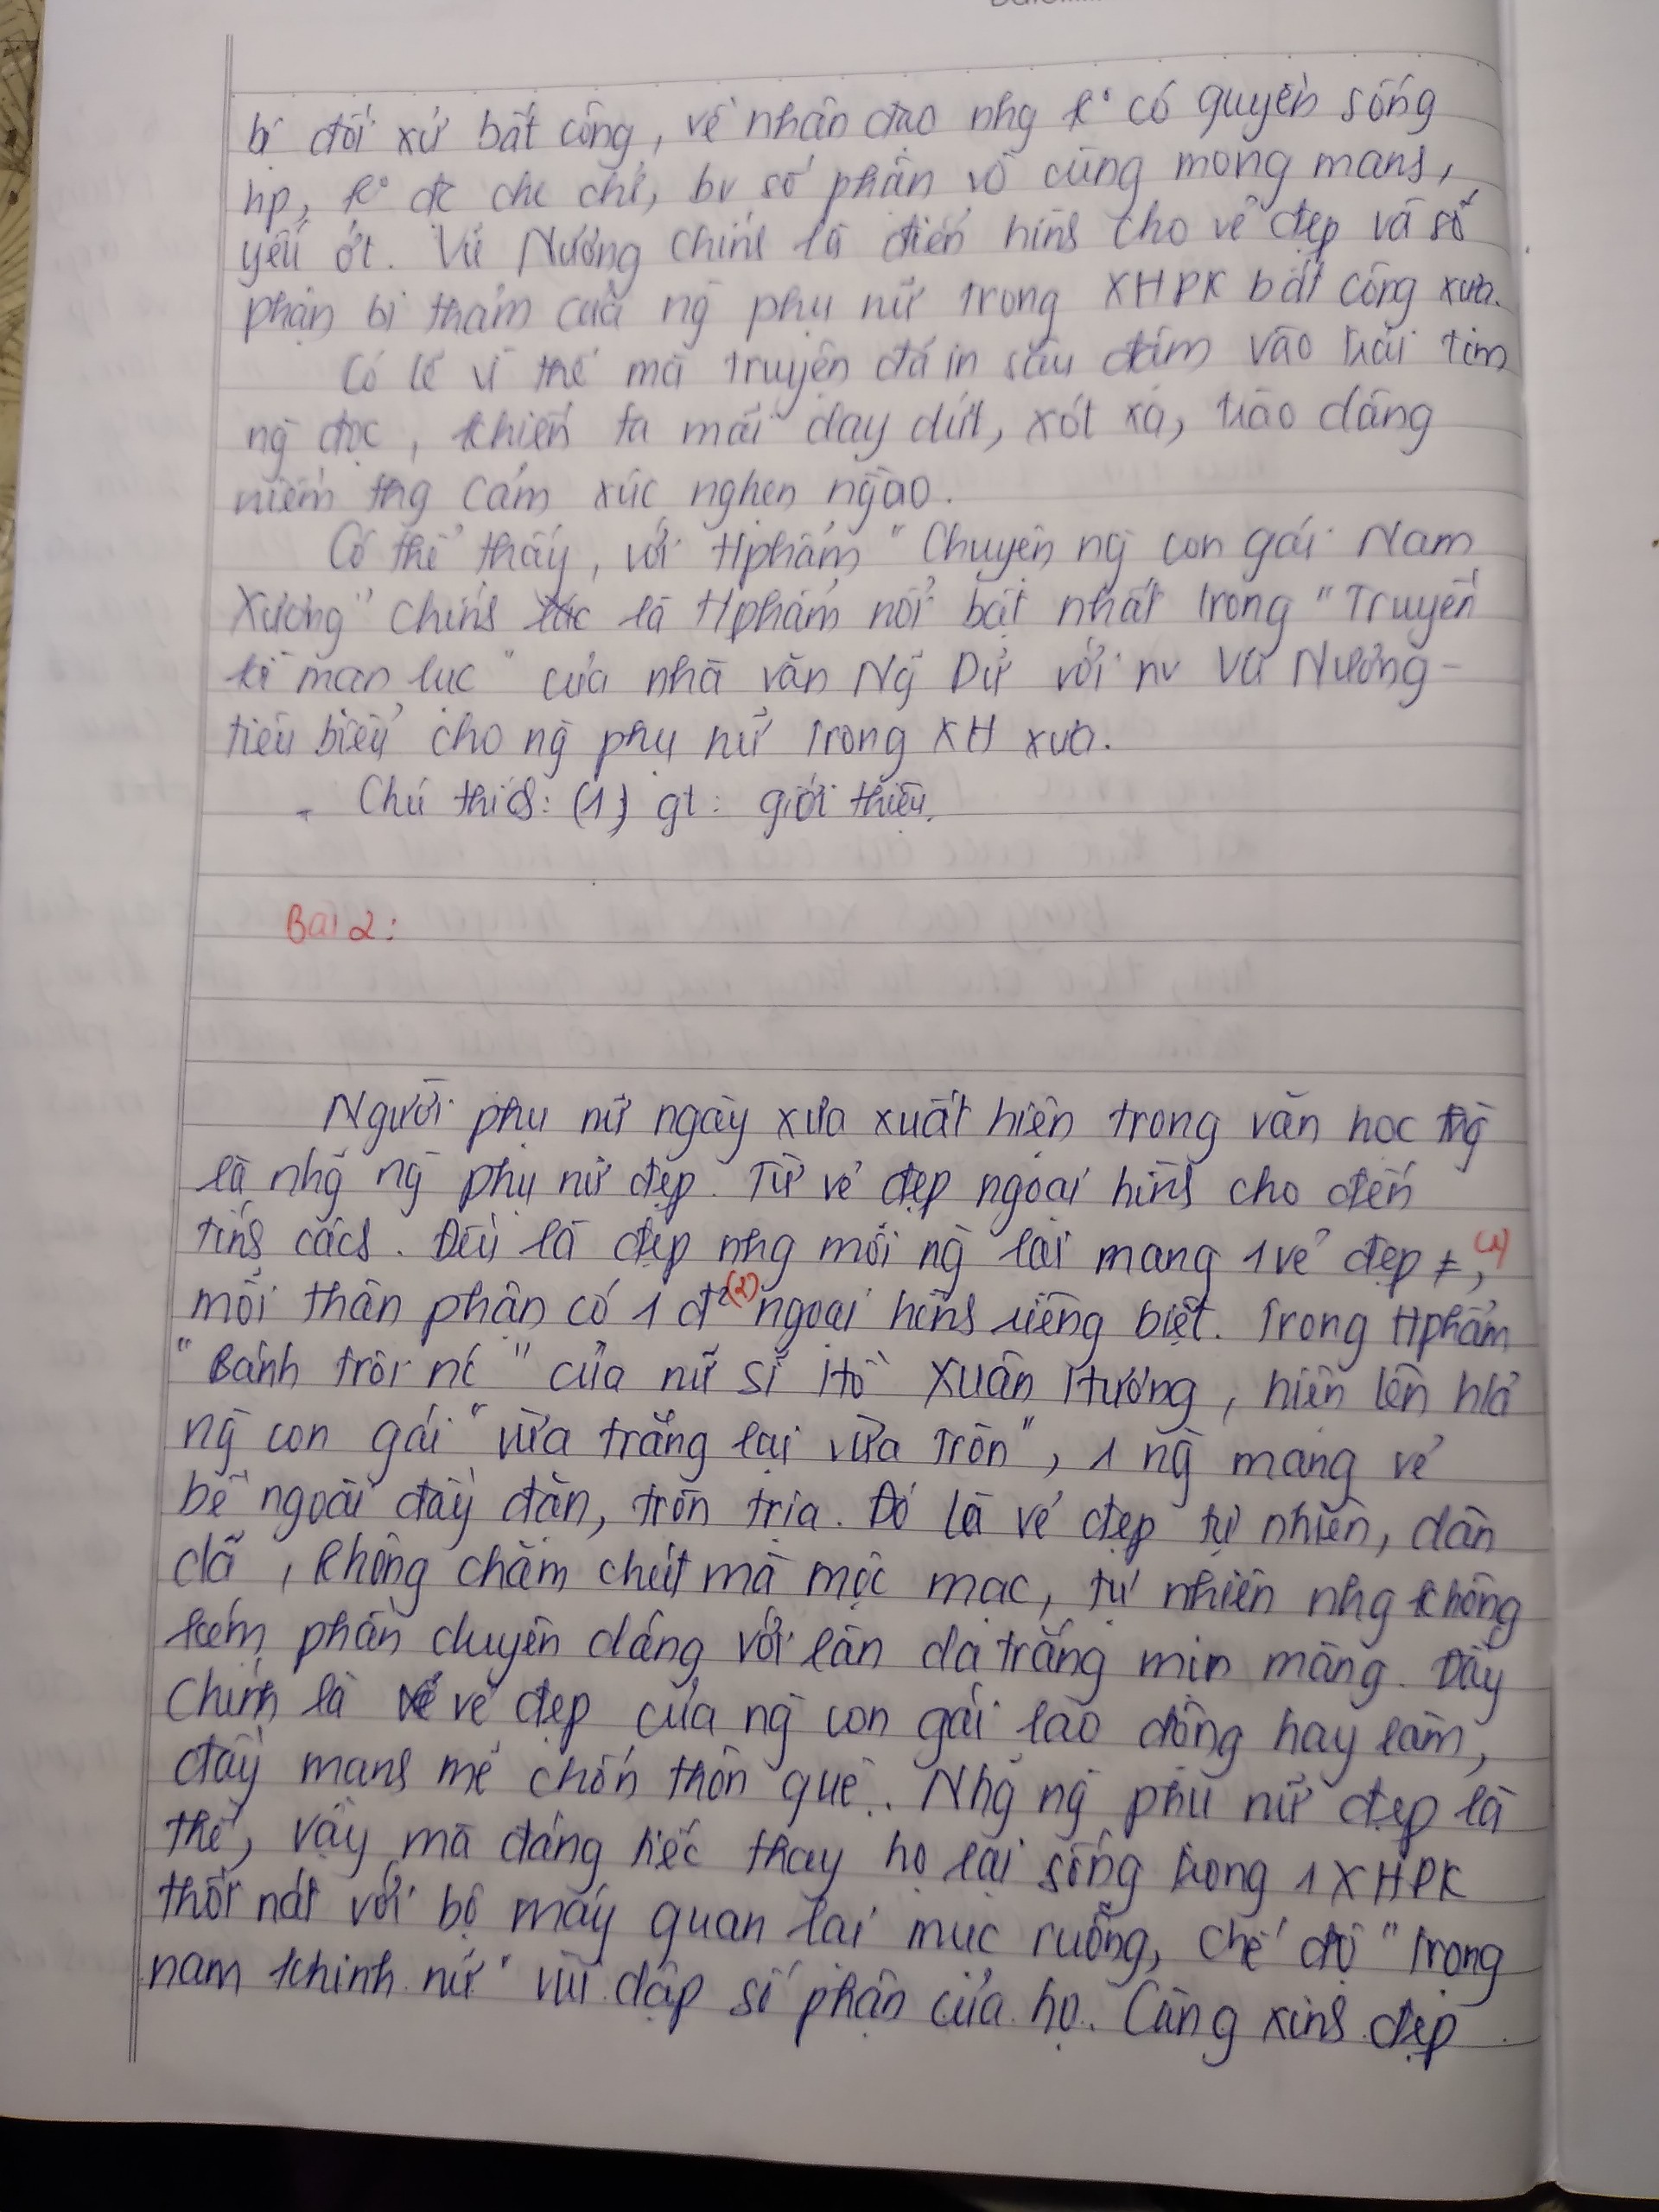 bị đối xử bất công, về nhân đạo nhg k° có quyền sống
hp, k° đc che chở, bv số phận vô cùng mong manh,
yếu ớt. Vũ Nương chính là điển hình cho vẻ đẹp và số
phận bi thảm của ng phụ nữ trong XHPK bất công xưa.
Có lẽ vì thế mà truyện đã in sâu đậm vào trái tim
ng đọc, khiến ta mãi day dứt, xót xa, trào dâng
niềm thg cảm xúc nghẹn ngào.
Có thể thấy, với tphẩm "Chuyện ng con gái Nam
Xương" chính là tphẩm nổi bật nhất trong "Truyền
kì mạn lục" của nhà văn Ng Dữ với nv Vũ Nương -
tiêu biểu cho ng phụ nữ trong XH xưa.
- Chú thích: (1) gt: giới thiệu.
Bài 2:
Người phụ nữ ngày xưa xuất hiện trong văn học thg
là nhg ng phụ nữ đẹp. Từ vẻ đẹp ngoại hình cho đến
tính cách. Đều là đẹp nhg mỗi ng lại mang 1 vẻ đẹp ≠, (1)
mỗi thân phận có 1 đ² (2) ngoại hình riêng biệt. Trong tphẩm
"Bánh trôi nc" của nữ sĩ Hồ Xuân Hương, hiện lên h/ả
ng con gái "vừa trắng lại vừa tròn", 1 ng mang vẻ
bề ngoài đầy đặn, tròn trịa. Đó là vẻ đẹp tự nhiên, dân
dã, không chăm chút mà mộc mạc, tự nhiên nhg không
kém phần duyên dáng với làn da trắng mịn màng. Đây
chính là vẻ đẹp của ng con gái lao động hay làm,
đầy mạnh mẽ chốn thôn quê. Nhg ng phụ nữ đẹp là
thế, vậy mà đáng tiếc thay họ lại sống trong 1 XHPK
thối nát với bộ máy quan lại mục ruỗng, chế độ "Trọng
nam khinh nữ" vùi dập số phận của họ. Càng xinh đẹp